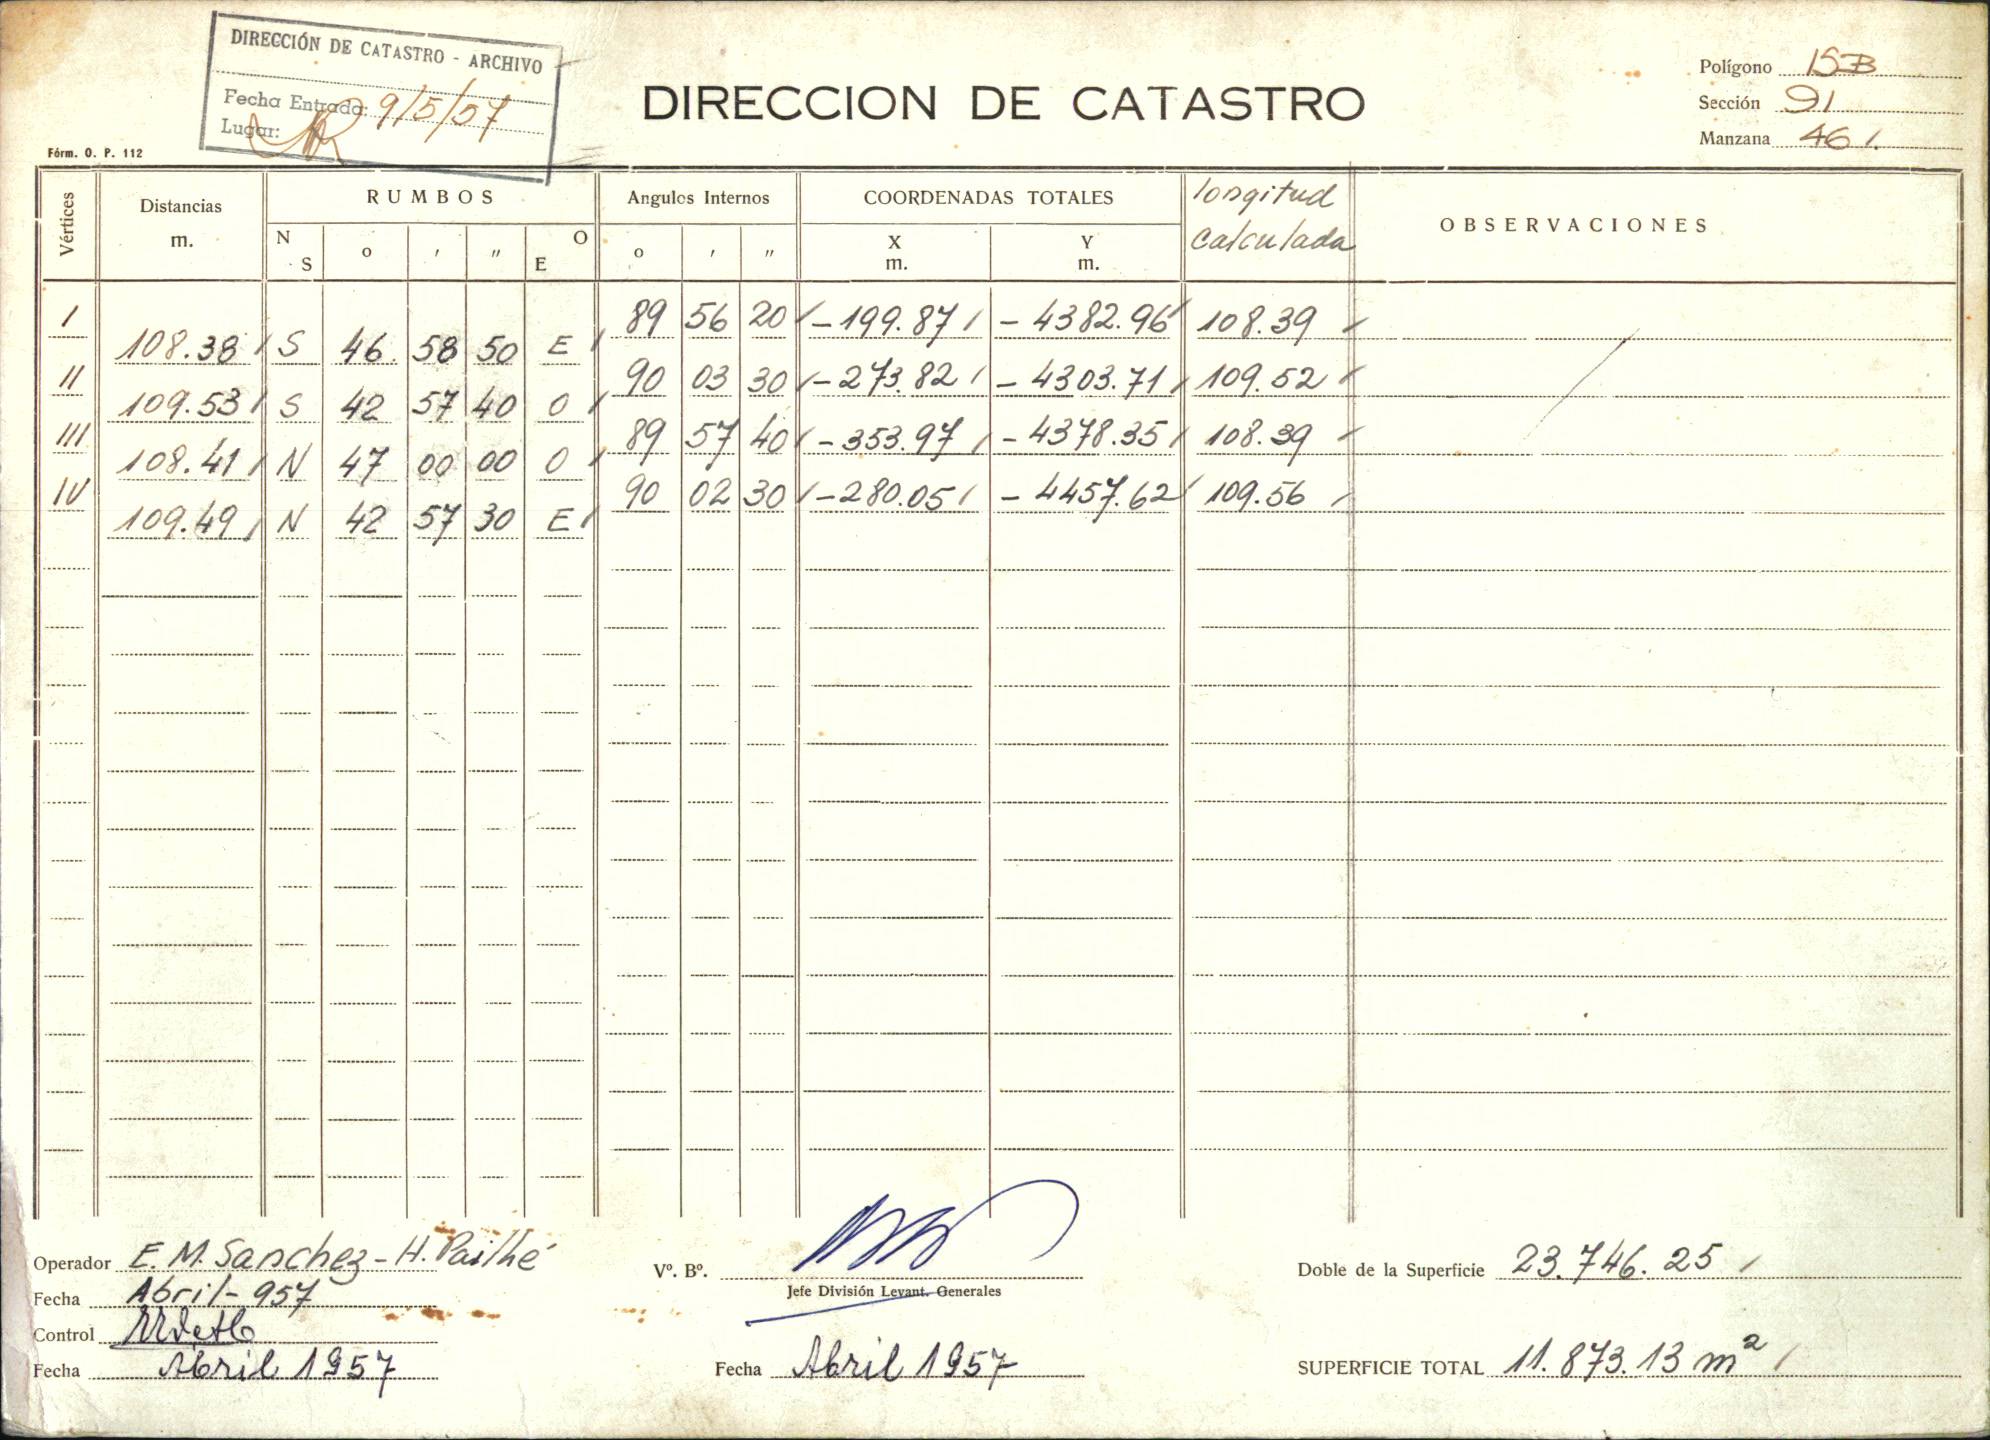 DIRECCIÓN DE CATASTRO - ARCHIVO
Fecha Entrada: 9/5/57
Lugar:
Fórm. O. P. 112
DIRECCION DE CATASTRO
Polígono 15B
Sección 91
Manzana 461.
Vértices
Distancias
m.
RUMBOS
N S
o ' "
O E
Angulos Internos
o ' "
COORDENADAS TOTALES
X
m.
Y
m.
longitud
calculada
OBSERVACIONES
I 89 56 20 -199.87 -4382.96 108.39
108.38 S 46 58 50 E
II 90 03 30 -273.82 -4303.71 109.52
109.53 S 42 57 40 O
III 89 57 40 -353.97 -4378.35 108.39
108.41 N 47 00 00 O
IV 90 02 30 -280.05 -4457.62 109.56
109.49 N 42 57 30 E
Operador E. M. Sanchez - H. Pailhé
Fecha Abril - 957
Control
Fecha Abril 1957
Vº. Bº.
Jefe División Levant. Generales
Fecha Abril 1957
Doble de la Superficie 23.746.25
SUPERFICIE TOTAL 11.873.13 m²